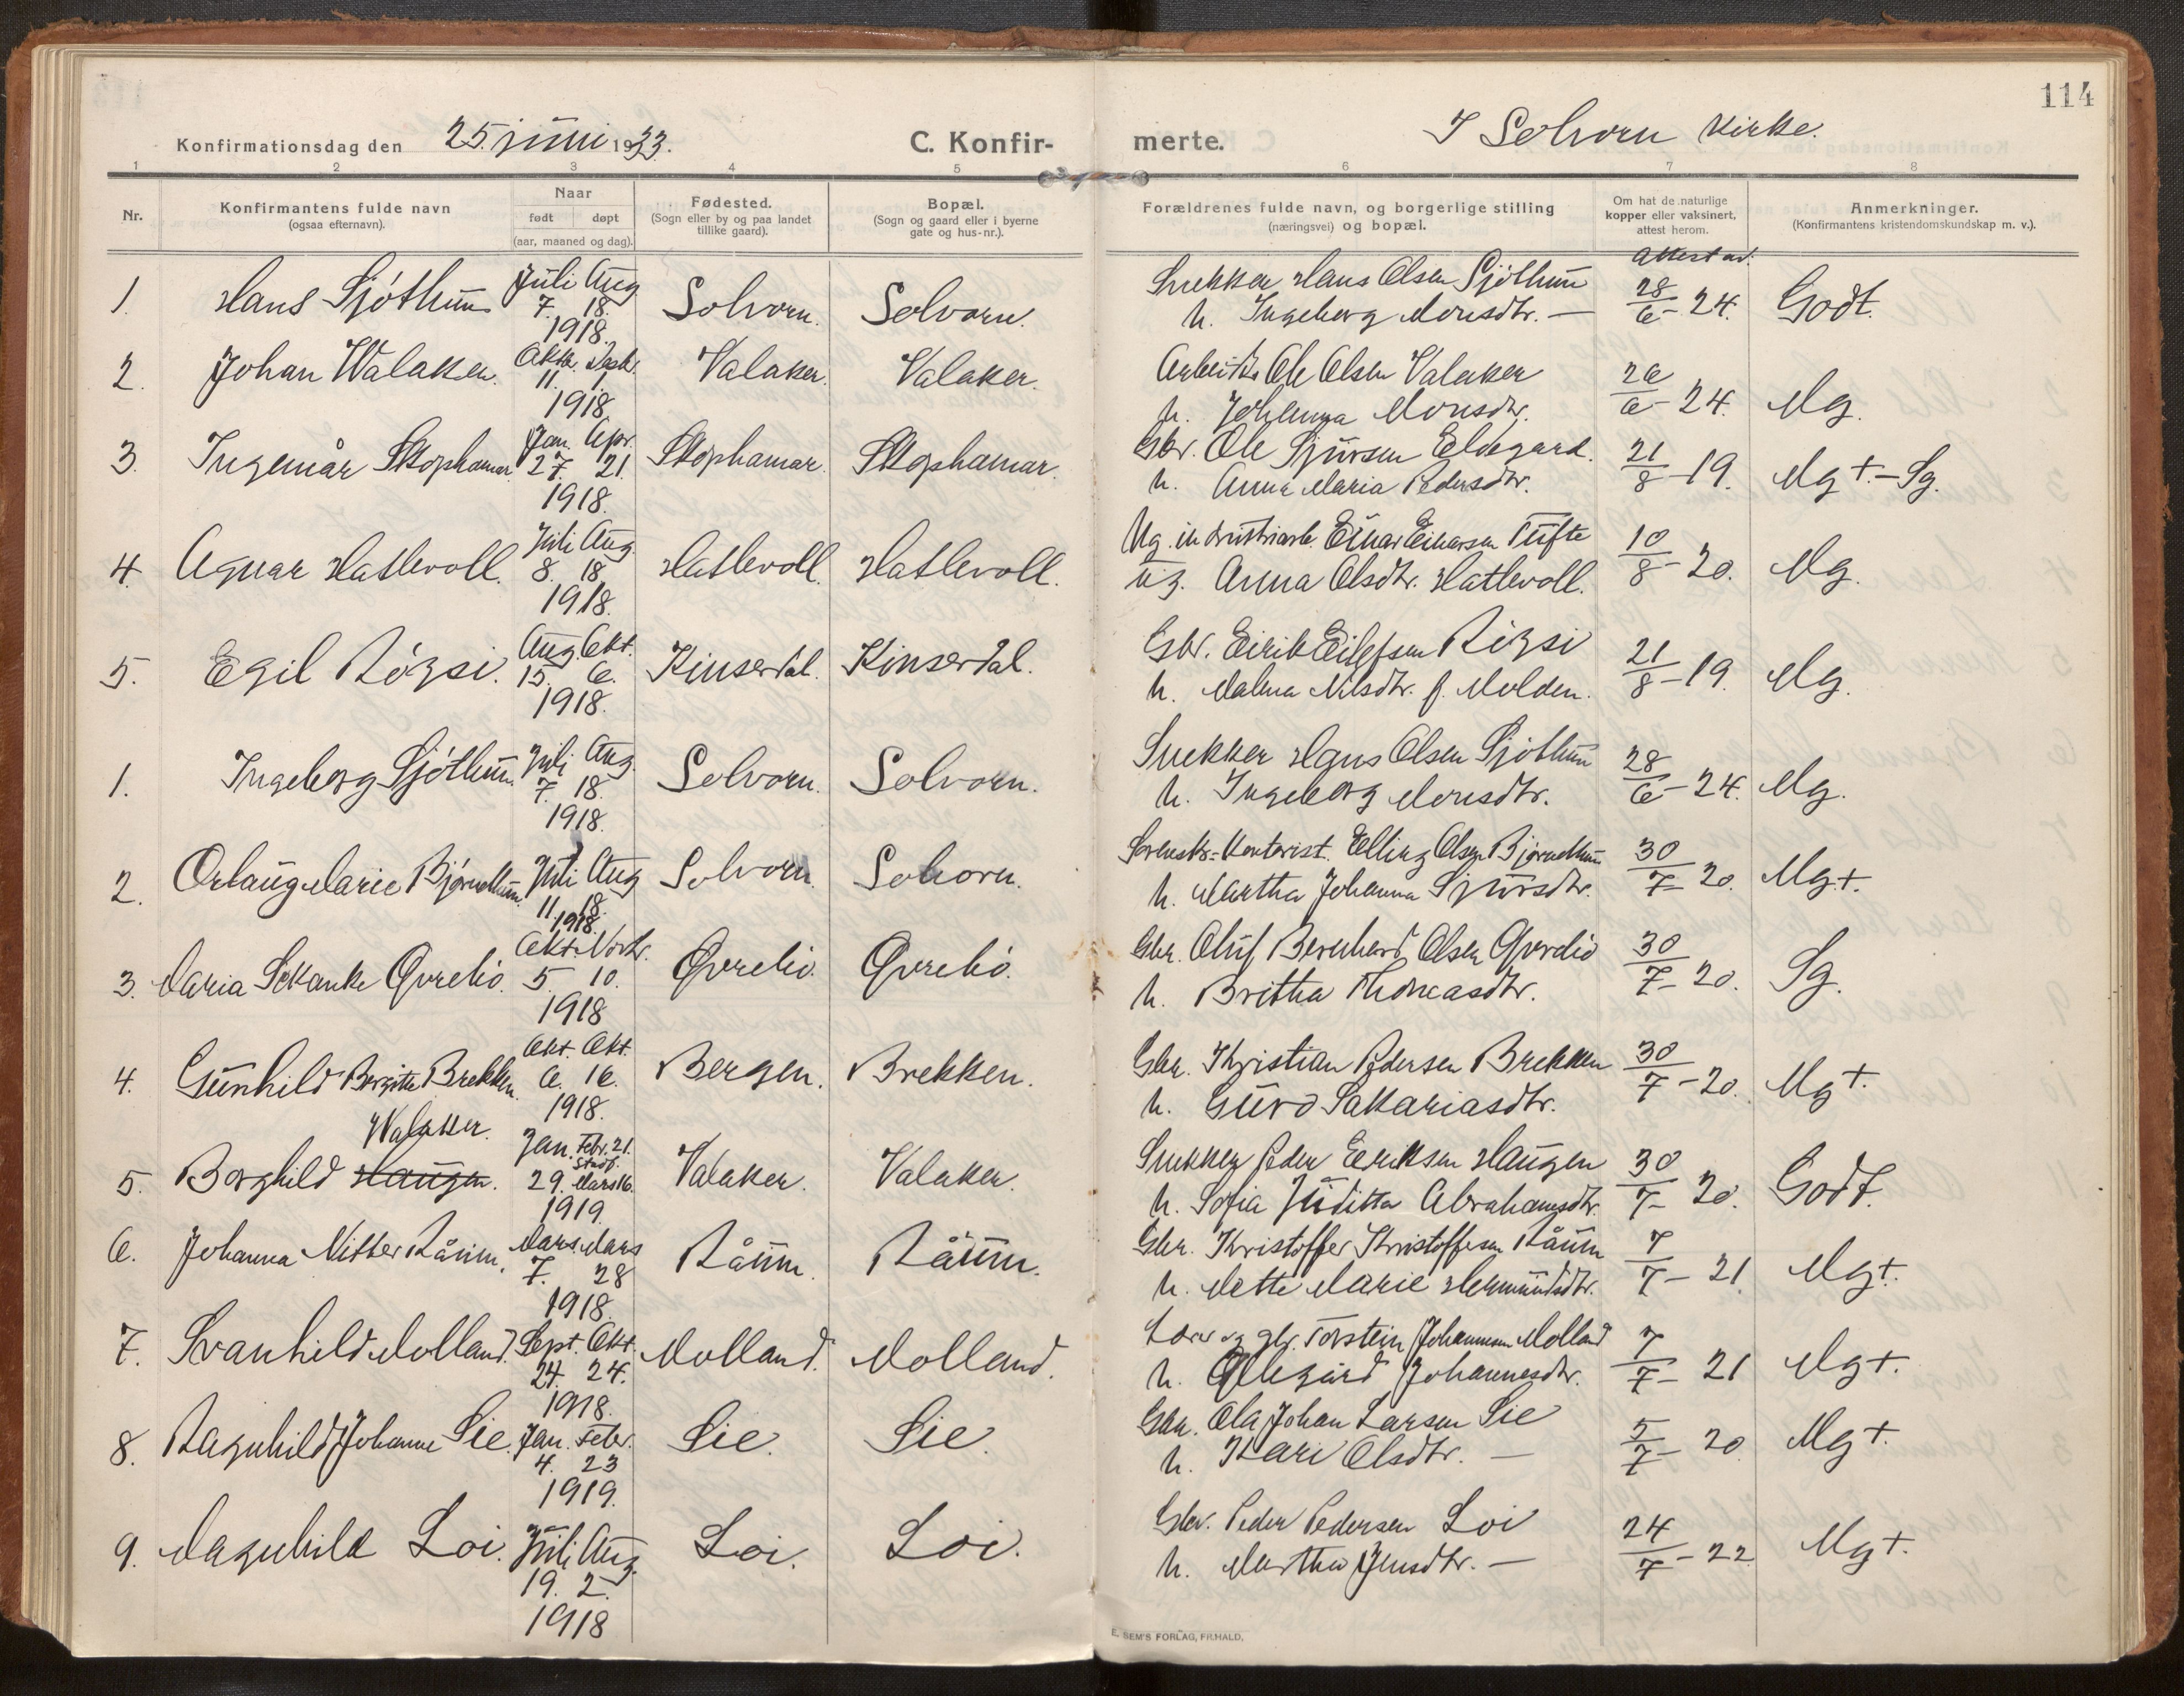 114
Konfirmationsdag den 25. juni 1933.
C. Konfir-
merte.
I Solvorn Kirke.
1 2 3 4 5 6 7 8
Nr.
Konfirmantens fulde navn
(ogsaa efternavn).
Naar
født døpt
(aar, maaned og dag).
Fødested.
(Sogn eller by og paa landet
tillike gaard).
Bopæl.
(Sogn og gaard eller i byerne
gate og hus-nr.).
Forældrenes fulde navn, og borgerlige stilling
(næringsvei) og bopæl.
Om hat de naturlige
kopper eller vaksinert,
attest herom.
Anmerkninger.
(Konfirmantens kristendomskundskap m. v.).
Attest av.
1. Hans Sjøthun Juli 7. Aug. 18. 1918. Solvorn. Solvorn. Snekker Hans Olsen Sjøthun 28/6-24. Godt.
h. Ingeborg Monsdtr. —
2. Johan Walaker. Oktbr. 11. 1. 1918. Valaker. Valaker. Arbeider Ole Olsen Valaker 26/6-24. Mg.
h. Johanna Monsdtr.
3. Ingemår Skophamar Jan. 27. Apr. 21. 1918. Skophamar. Skophamar. Gbr. Ole Sjursen Eldegard. 21/8-19. Mg+.-Sg.
h. Anna Maria Pedersdtr.
4. Agnar Hatlevoll. Juli 8. Aug. 18. 1918. Hatlevoll. Hatlevoll. Ug. industriarb. Einar Einarsen Tufte 10/8-20. Mg.
ug. Anna Olsdtr. Hatlevoll.
5. Egil Røgsi. Aug. 15. Okt. 6. 1918. Kinserdal. Kinserdal. Gbr. Eirik Eilefsen Røgsi 21/8-19. Mg.
h. Malena Nilsdtr. f. Molden.
1. Ingeborg Sjøthun. Juli 7. Aug. 18. 1918. Solvorn. Solvorn. Snekker Hans Olsen Sjøthun 28/6-24. Mg.
h. Ingeborg Monsdtr.
2. Orlaug Marie Bjørnethun. Juli 11. Aug. 18. 1918. Solvorn. Solvorn. Kontorist. Elling Olsen Bjørnethun 30/7-20. Mg+.
h. Martha Johanna Sjursdtr.
3. Maria Sckanke Øvrelio. Okt. 5. Novbr. 10. 1918 Øvrelio. Øvrelio. Gbr. Oluf Bernhard Olsen Øvrelio 30/7-20. Sg.
h. Britha Thomasdtr.
4. Gunhild Bergitte Brekken. Okt. 6. Okt. 16. 1918. Bergen. Brekken. Gbr. Kristian Pedersen Brekken 30/7-20. Mg+.
h. Guro Sakariasdtr.
Walaker.
5. Borghild Haugen. Jan. 29. Febr. 21. stadf. Mars 16. 1919. Valaker. Valaker. Snekker Peder Eriksen Haugen 30/7-20. Godt.
h. Sofia Juditta Abrahamsdtr.
6. Johanna Nitter Råum. Mars 7. Mars 28 1918. Råum. Råum. Gbr. Kristoffer Kristoffersen Råum 7/7-21. Mg+.
h. Mette Marie Hermundsdtr.
7. Svanhild Molland. Sept. 24. Okt. 24. 1918. Molland. Molland. Lærer og gbr. Torstein Johannesen Molland 7/7-21 Mg+.
h. Øllegård Johannesdtr.
8. Ragnhild Johanne Lie. Jan. 4. Febr. 23 1919. Lie. Lie. Gbr. Ola Johan Larsen Lie 5/7-20 Mg+.
h. Kari Olsdtr. —
9. Magnhild Loi. Juli 19. Aug. 2. 1918 Loi. Loi. Gbr. Peder Pedersen Loi 24/7-22 Mg+.
h. Martha Jensdtr. —
E. SEM'S FORLAG, FR.HALD.